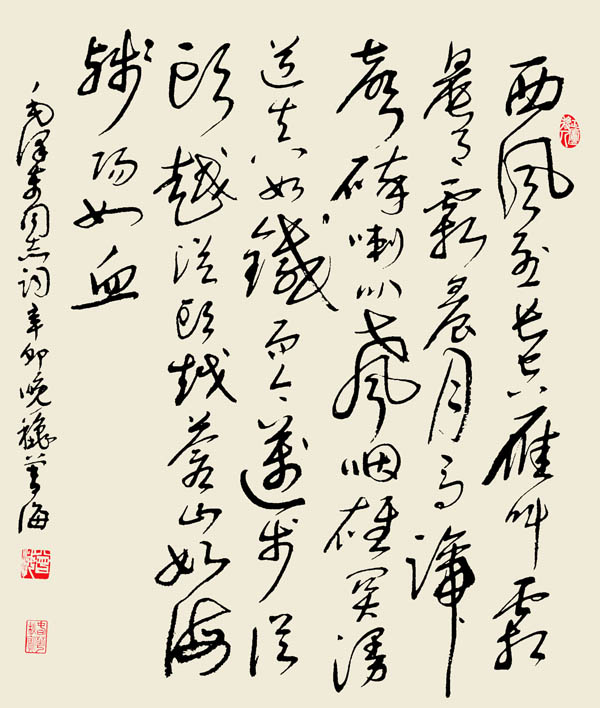 西風烈長空雁叫霜
晨月霜晨月馬蹄
聲碎喇叭聲咽雄關漫
道真如鐵而今邁步從
頭越從頭越蒼山如海
殘陽如血
毛澤東同志詞辛卯晚秋海